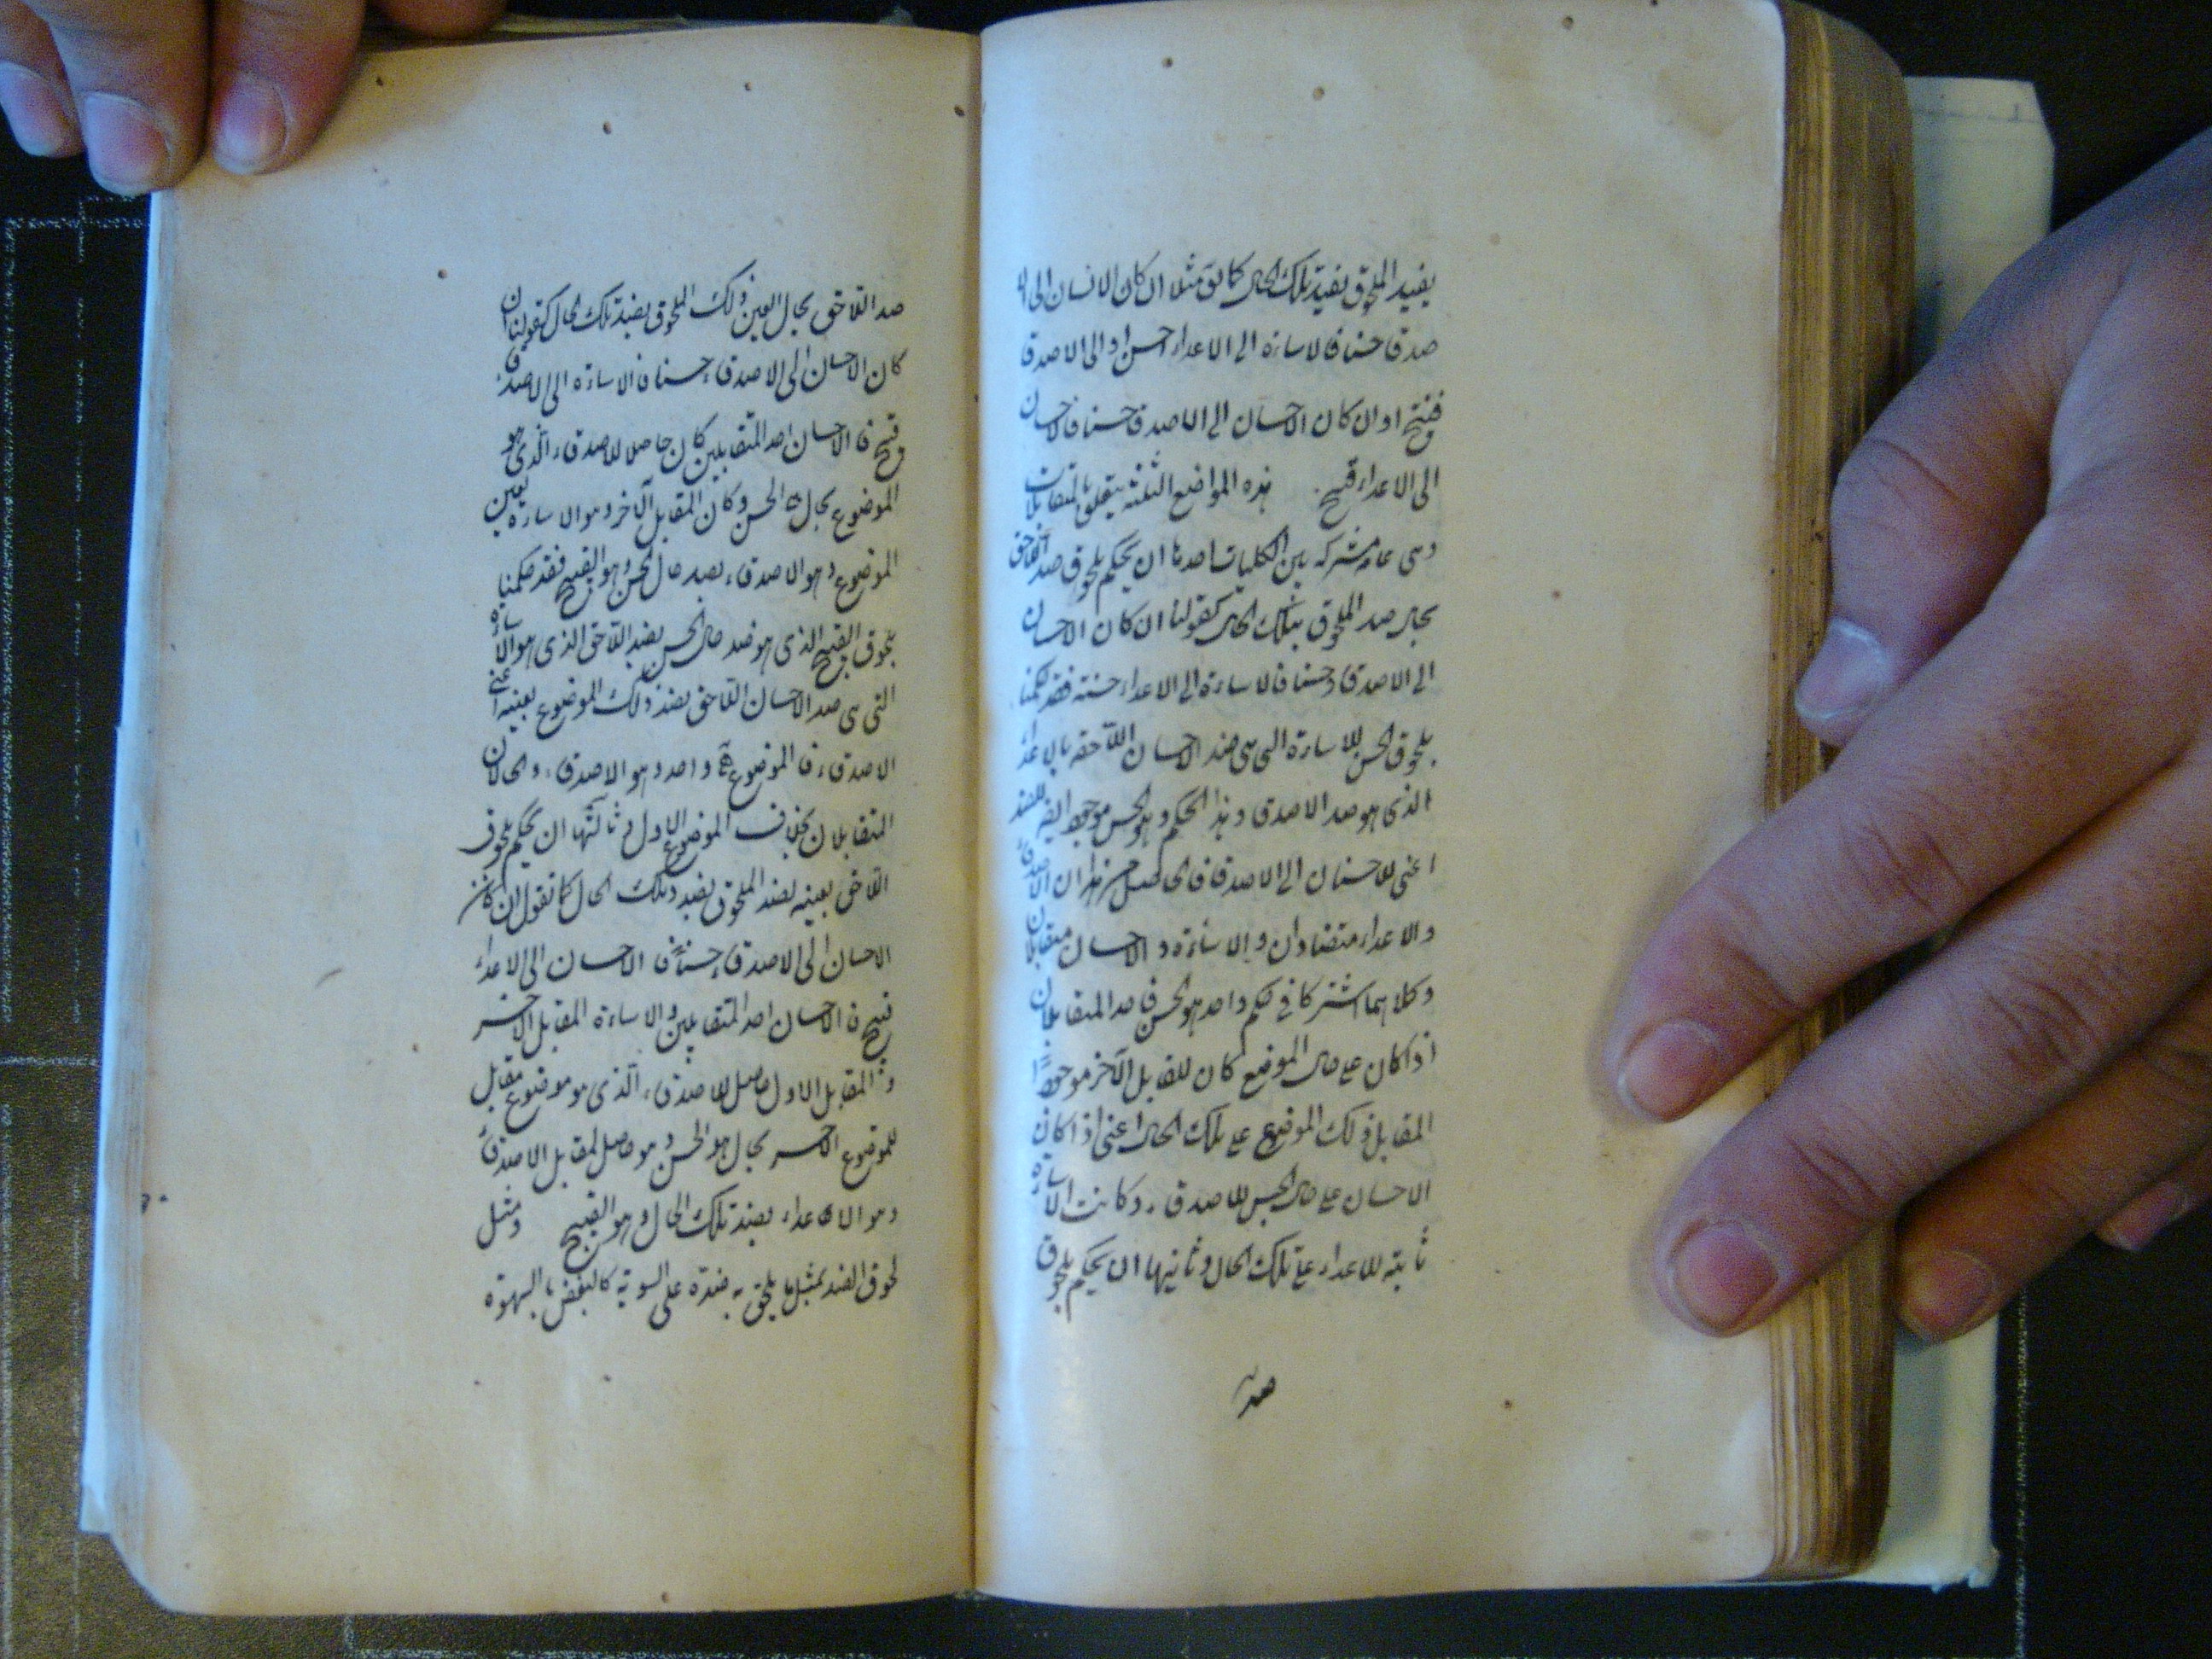 يفيد الملحوق بضد تلك الحال كما يق مثلا ان كان الانسان الى الا
صدقا حسنا فالاساءة الى الاعداء حسن او الى الاصدقا
قبيح او ان كان الاحسان الى الاصدقا حسنا فالاحسان
الى الاعداء قبيح هذه المواضع الثلثة يتعلق بالمتقابلات
وهى عامة مشتركه بين الكليات احدها ان يحكم بلحوق ضد اللاحق
بحال ضد الملحوق بتلك الحال كقولنا ان كان الاحسان
الى الاصدقاء حسنا فالاساءة الى الاعداء حسنة فقد حكمنا
بلحوق الحسن للاساءة التى هى ضد الاحسان اللاحقه بالاعداء
الذى هو ضد الاصدقاء وهذا الحكم وهو الحسن موجود للضد
اعنى للاحسان الى الاصدقا فالحاصل من هذا ان الاصدقاء
والاعداء متضادان والاساءة والاحسان متقابلان
وكلاهما اشتركا فى حكم واحد هو الحسن فاحد المتقابلان
اذا كان على حال الموضع كان للمقابل الآخر موجودا
المقابل ذلك الموضع على تلك الحال اعنى اذا كان
الاحسان على حال الحسن للاصدقاء وكانت الاساءة
ثابتة للاعداء على تلك الحال وثانيها ان يحكم بلحوق
ضد
ضد اللاحق بحال لعين ذلك الملحوق بضد تلك الحال كقولنا ان
كان الاحسان الى الاصدقاء حسنا فالاساءة الى الاصدقاء
قبيح فالاحسان احد المتقابلين كان حاصلا للاصدقاء الذى هو
الموضوع بحال الحسن وكان المقابل الآخر وهو الاساءة لعين
الموضوع وهو الاصدقاء بضد حال الحسن وهو القبيح فقد حكمنا
بلحوق القبيح الذى هو ضد حال الحسن بضد اللاحق الذى هو الاساءة
التى هى ضد الاحسان اللاحق بضد ذلك الموضوع بعينه اعنى
الاصدقاء فالموضوع واحد وهو الاصدقاء والحالان
المتقابلان بخلاف الموضوع الاول وثالثها ان يحكم بلحوق
اللاحق بعينه لضد الملحوق بضد تلك الحال كما تقول ان كان
الاحسان الى الاصدقاء حسنا فالاحسان الى الاعداء
قبيح فالاحسان احد المتقابلين والاساءة المقابل الآخر
والمقابل الاول حاصل للاصدقاء الذى هو موضوع مقابل
للموضوع الآخر بحال هو الحسن وهو حاصل لمقابل الاصدقاء
وهو الاعداء بضد تلك الحال وهو القبيح ومثل
لحوق الضد بمثل ما يلحق به ضده على السوية كالبغض بالشهوة